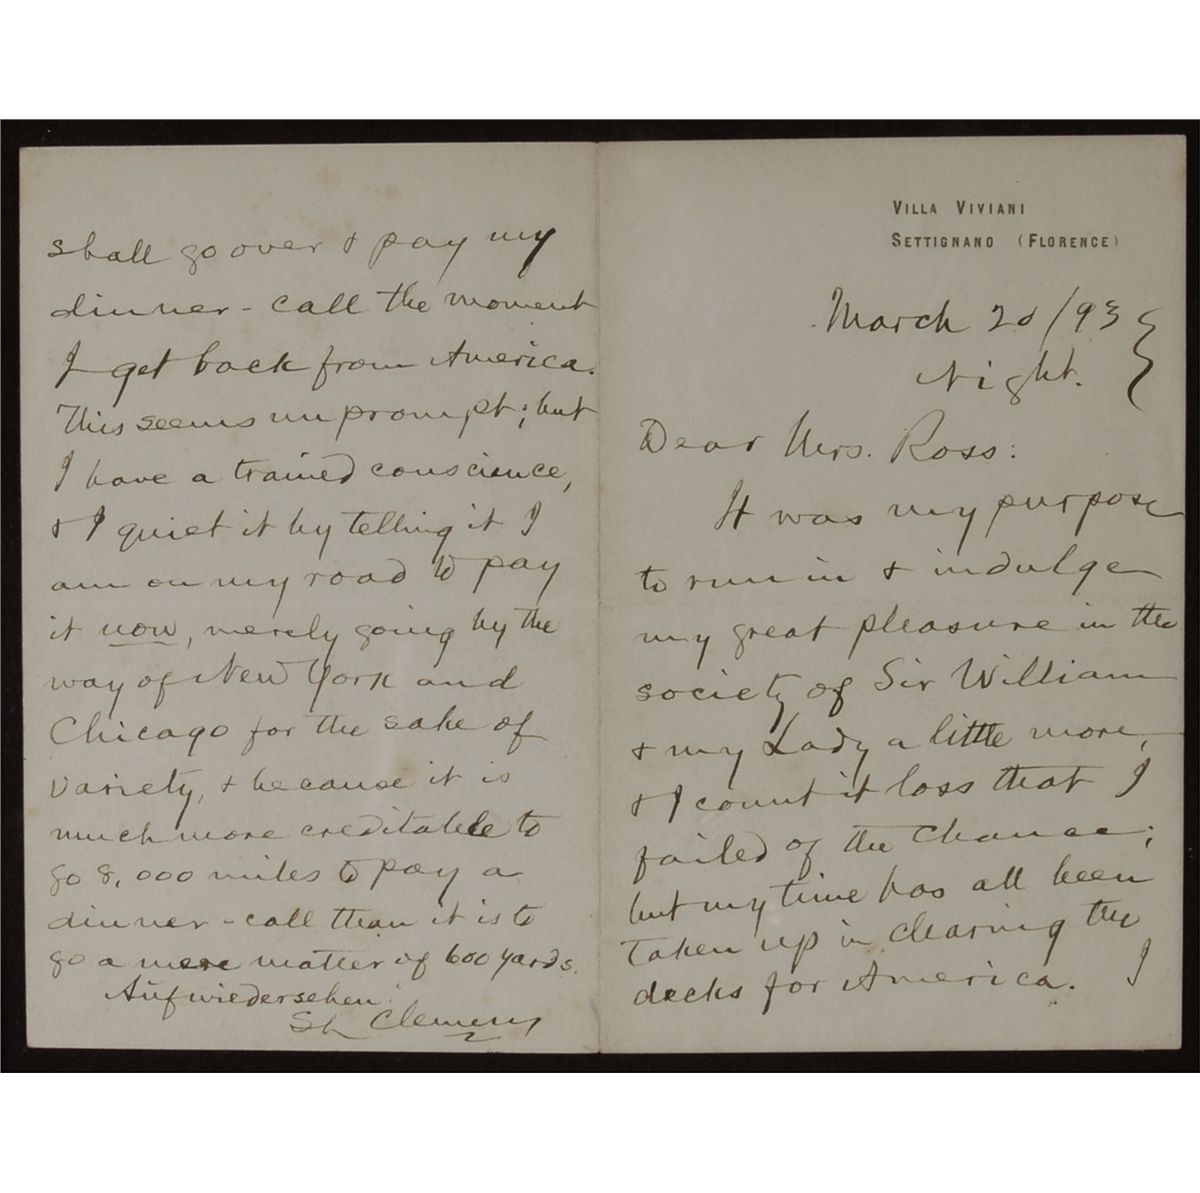 VILLA VIVIANI
SETTIGNANO (FLORENCE)
March 20/93
Night.
Dear Mrs. Ross:
It was my purpose
to run in & indulge
my great pleasure in the
society of Sir William
& my Lady a little more,
& I count it loss that I
failed of the chance;
but my time has all been
taken up in clearing the
decks for America. I
shall go over & pay my
dinner-call the moment
I get back from America.
This seems unprompt; but
I have a trained conscience,
& I quiet it by telling it I
am on my road to pay
it now, merely going by the
way of New York and
Chicago for the sake of
variety, & because it is
much more creditable to
go 8,000 miles to pay a
dinner-call than it is to
go a mere matter of 600 yards.
Aufwiedersehen!
SL Clemens